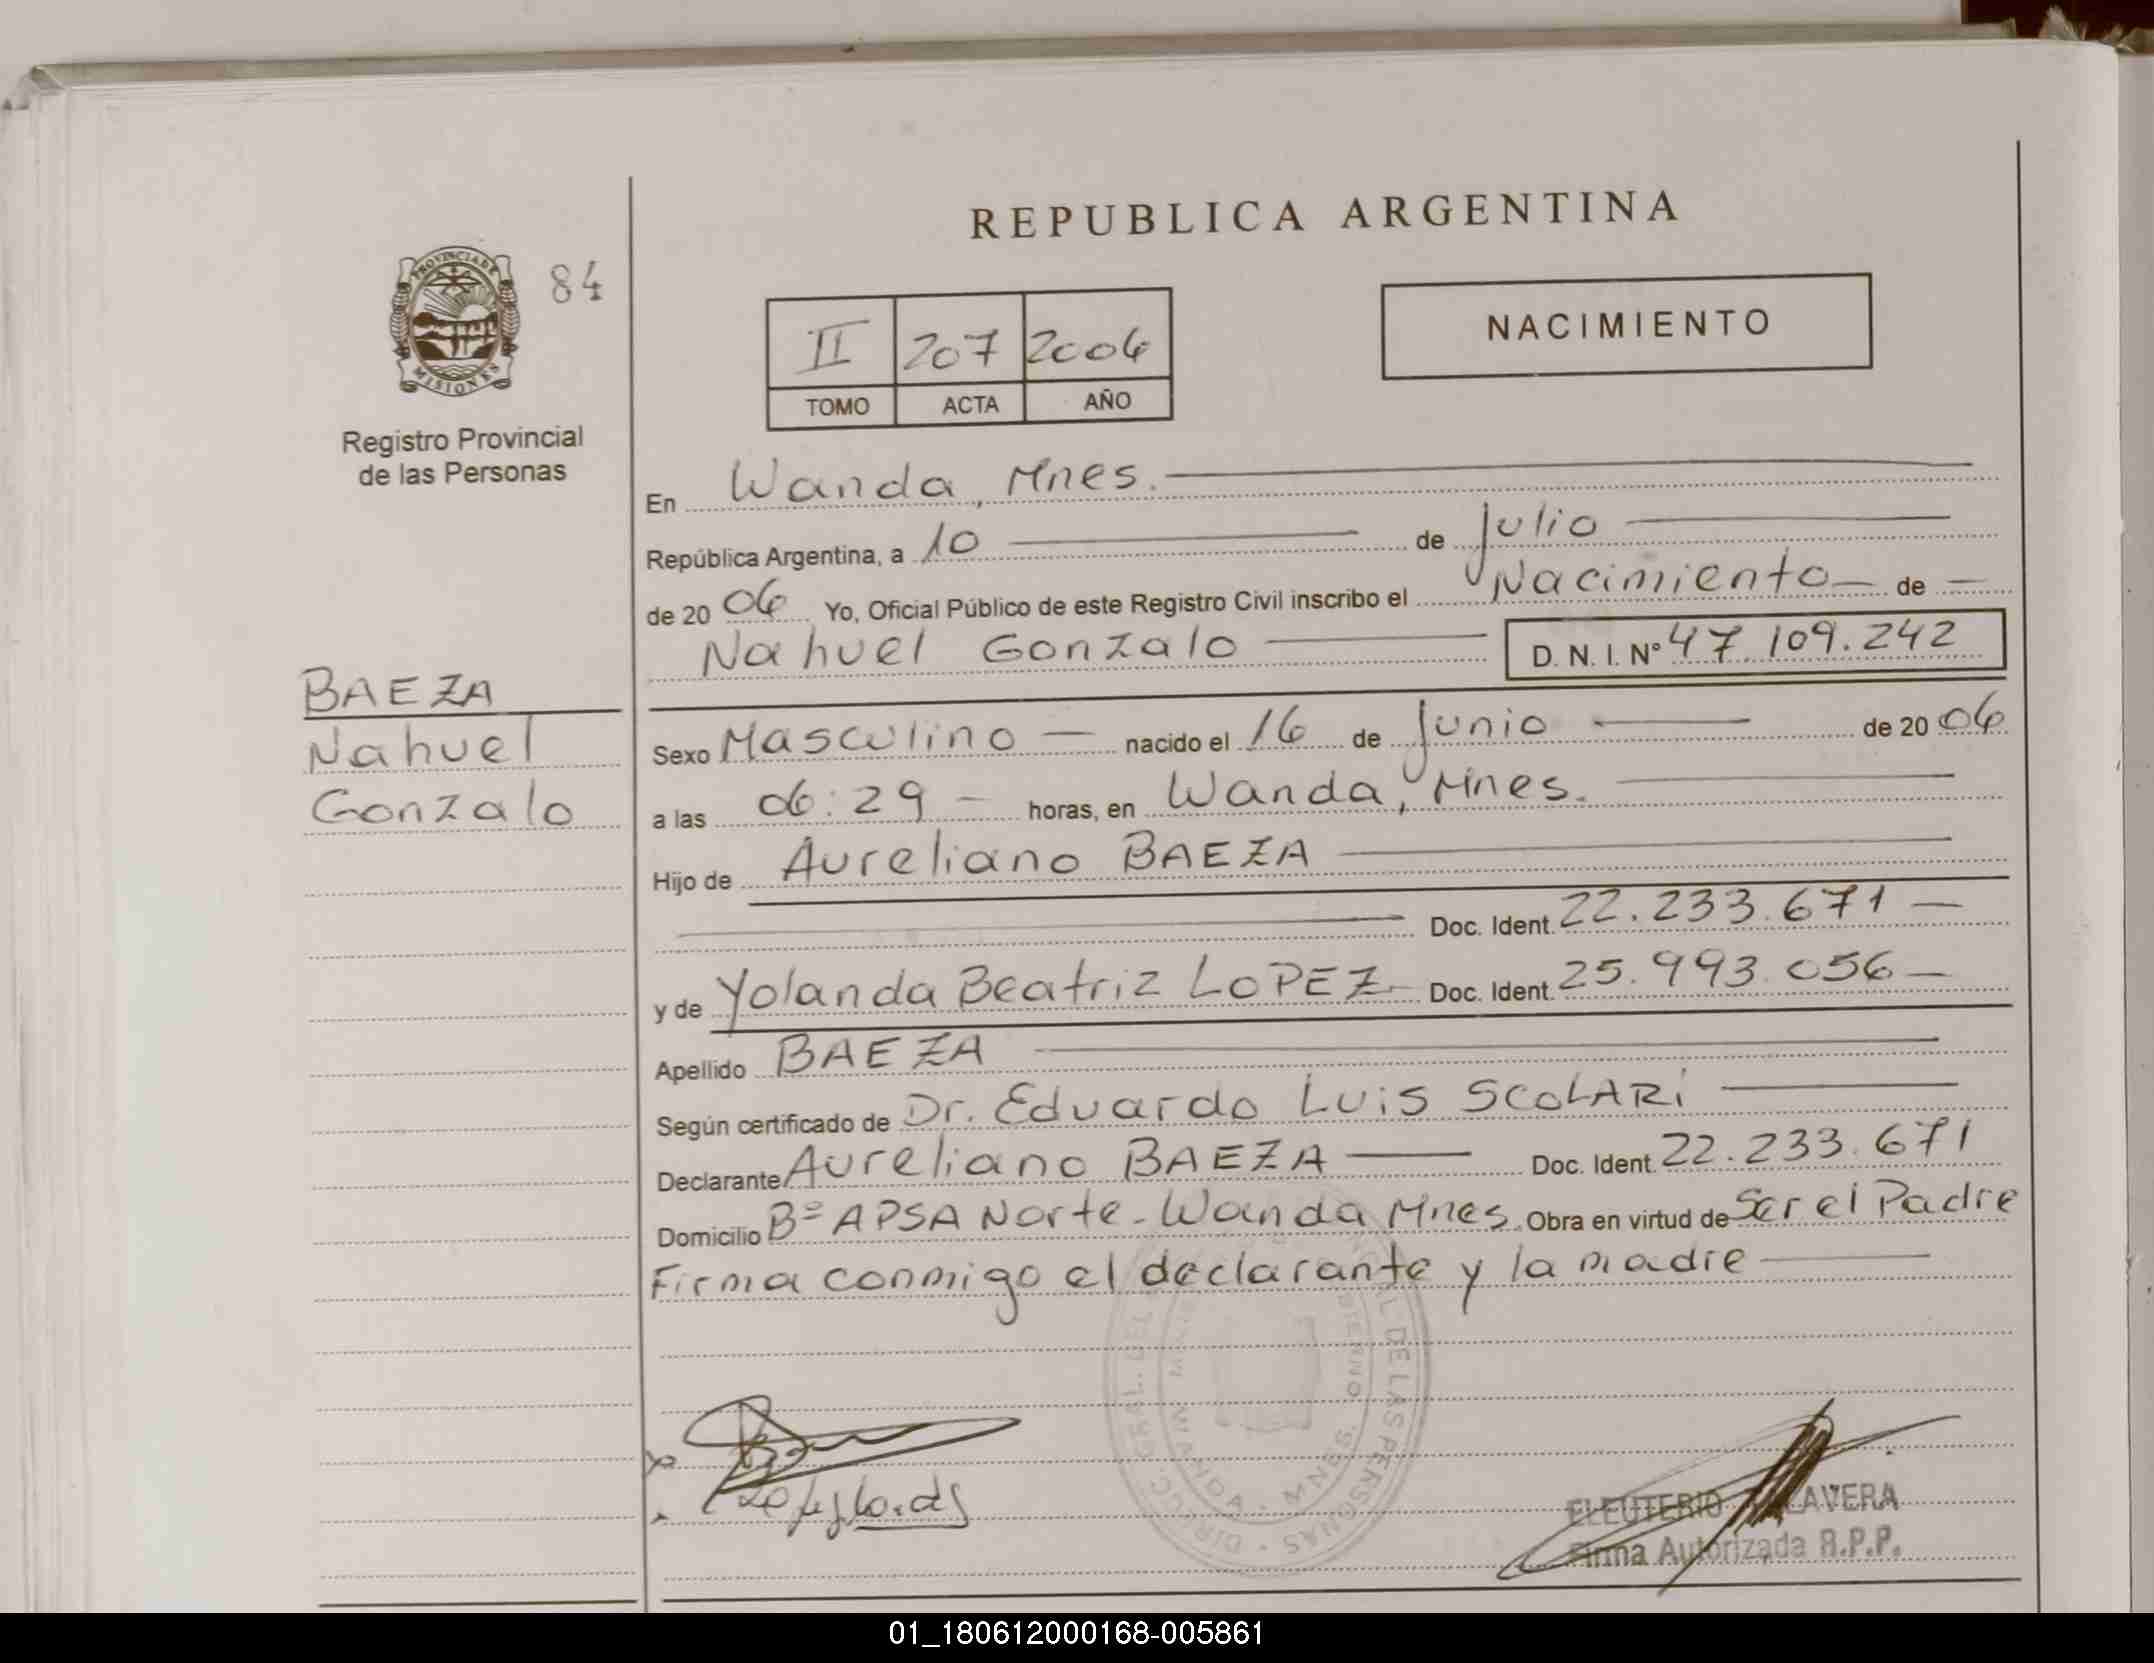 REPUBLICA ARGENTINA
PROVINCIA DE
MISIONES
84
Registro Provincial
de las Personas
II 207 2006
TOMO ACTA AÑO
NACIMIENTO
En Wanda, Mnes.
República Argentina, a 10 de Julio
de 20 06 Yo, Oficial Público de este Registro Civil inscribo el Nacimiento de
Nahuel Gonzalo D. N. I. Nº 47.109.242
BAEZA
Nahuel
Gonzalo
Sexo Masculino nacido el 16 de Junio de 20 06
a las 06:29 horas, en Wanda, Mnes.
Hijo de Aureliano BAEZA
Doc. Ident. 22.233.671
y de Yolanda Beatriz LOPEZ Doc. Ident. 25.993.056
Apellido BAEZA
Según certificado de Dr. Eduardo Luis SCOLARI
Declarante Aureliano BAEZA Doc. Ident. 22.233.671
Domicilio Bº APSA Norte - Wanda Mnes. Obra en virtud de Ser el Padre
Firma conmigo el declarante y la madre
DE LAS PERSONAS
WANDA - MNES.
ELEUTERIO
Firma Autorizada R.P.P.
01_180612000168-005861